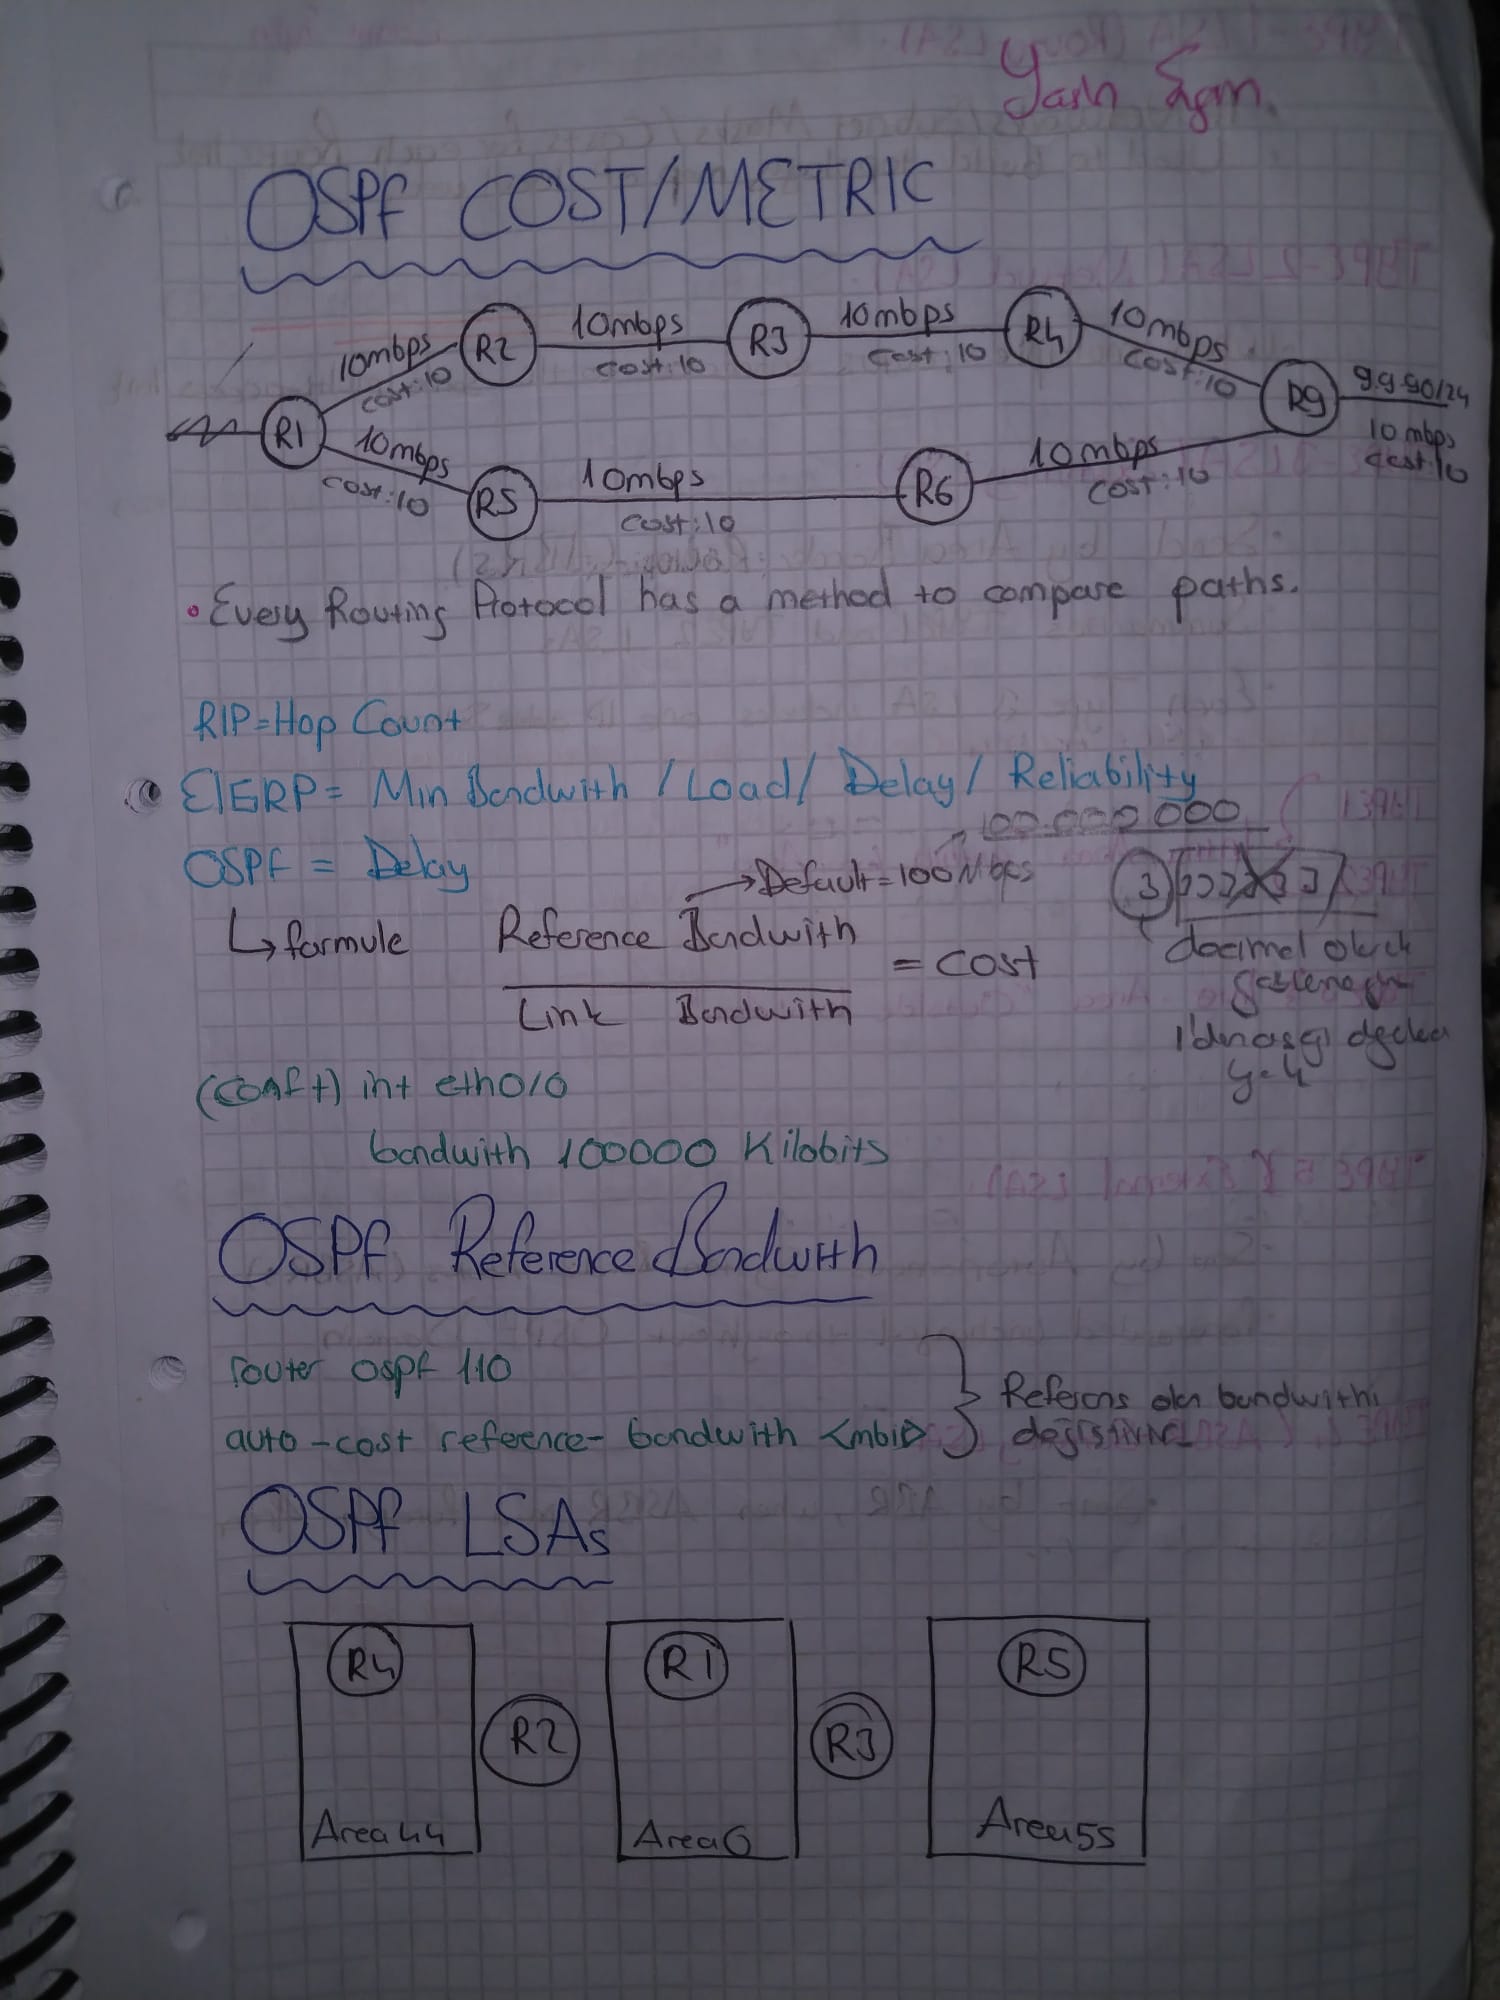 OSPF COST/METRIC
10mbps
cost:10
R2
10mbps
cost:10
R3
10mbps
cost:10
R4
10mbps
cost:10
R9
9.9.90/24
10 mbps
cost:10
R1
10mbps
cost:10
R5
10mbps
cost:10
R6
10mbps
cost:10
• Every Routing Protocol has a method to compare paths.
RIP=Hop Count
EIGRP= Min Bandwith / Load / Delay / Reliability
100.000 000
OSPF = Delay
→Default=100Mbps
3
↳formule
Reference Bandwith
Link Bandwith
= Cost
decimal olarak
(conft) int eth0/0
bandwith 100000 Kilobits
OSPF Reference Bandwith
router ospf 110
auto-cost reference-bandwith <mbit>
Referans olan bandwithi
değiştirme
OSPF LSAs
R4
Area44
R2
R1
Area0
R3
R5
Area55